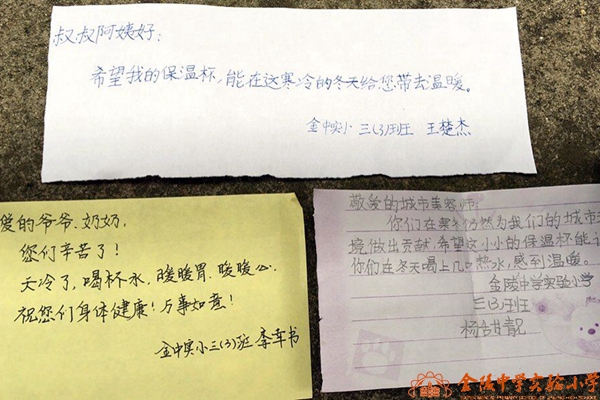 叔叔阿姨好:
希望我的保温杯,能在这寒冷的冬天给您带去温暖。
金中实小 三(3)班 王楚杰
爱的爷爷、奶奶,
您们辛苦了!
天冷了,喝杯水,暖暖胃、暖暖心。
祝您们身体健康!万事如意!
金中实小三(3)班
敬爱的城市美容师:
你们在寒冬仍然为我们的城市
境做出贡献,希望这小小的保温杯能
你们在冬天喝上几口热水,感到温暖。
金陵中学实验小学
三(3)班
金陵中学实验小学